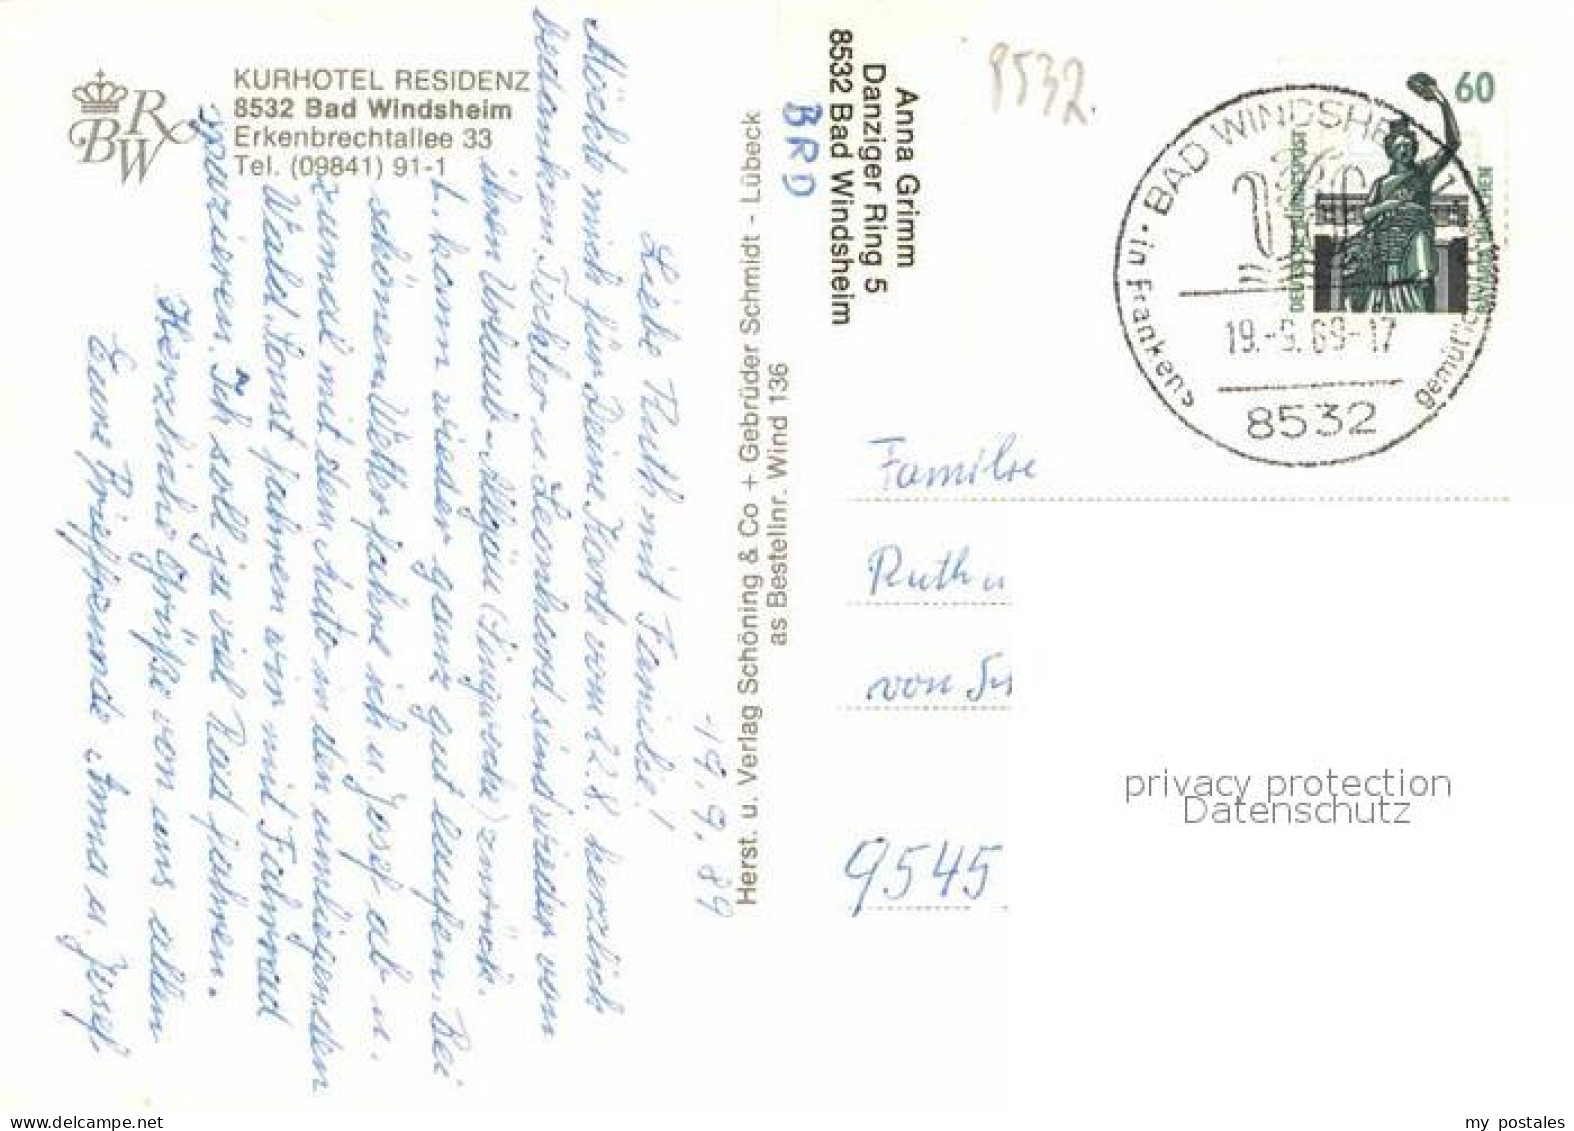 KURHOTEL RESIDENZ
8532 Bad Windsheim
Erkenbrechtallee 33
Tel. (09841) 91-1
BRW
19.9.89
Liebe Ruth mit Familie!
Möchte mich für Deine Karte vom 22.8. herzlich
bedanken. Tochter u. Leonhard sind wieder von
ihren Urlaub - Allgäu zurück.
L. kann wieder ganz gut laufen. Bei
schönem Wetter fahre ich u. Josef ab u.
zu mal mit dem Auto in den umliegenden
Wald. Sonst fahren wir mit Fahrrad
spazieren. Ich soll ja viel Raid fahren.
Herzliche Grüße von uns allen
Eure Brieffreunde Anna u. Josef.
Herst. u. Verlag Schöning & Co + Gebrüder Schmidt - Lübeck
as Bestellnr. Wind 136
Anna Grimm
Danziger Ring 5
8532 Bad Windsheim
BRD
8532.
60
DEUTSCHE BUNDESPOST
BAVARIA MÜNCHEN
BAD WINDSHEIM
19.-9.89-17
8532
in Frankens
Familie
Ruth u
von
9545
privacy protection
Datenschutz
www.delcampe.net
my_postales